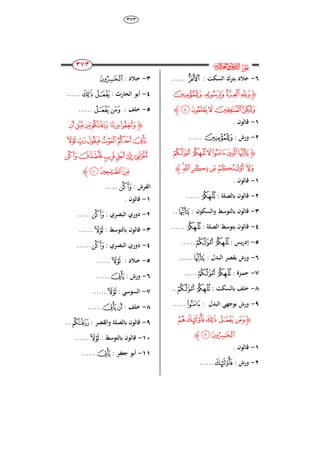 ٣٧٣
٣٧٣
٦- خلاد بترك السكت : ٱلۡأَعَزُّ ......
﴿ وَلِلَّهِ ٱلۡعِزَّةُ وَلِرَسُولِهِۦ وَلِلۡمُؤۡمِنِينَ
وَلَٰكِنَّ ٱلۡمُنَٰفِقِينَ لَا يَعۡلَمُونَ ٨ ﴾
١- قالون .
٢- ورش : وَلِلۡمُؤۡمِنِينَ ......
﴿ يَٰٓأَيُّهَا ٱلَّذِينَ ءَامَنُواْ لَا تُلۡهِكُمۡ أَمۡوَٰلُكُمۡ
وَلَآ أَوۡلَٰدُكُمۡ عَن ذِكۡرِ ٱللَّهِۚ ﴾
١- قالون .
٢- قالون بالصلة : تُلۡهِكُمۡ ......
٣- قالون بالتوسط والسكون : يَٰٓأَيُّهَا ..
٤- قالون بتوسط الصلة : تُلۡهِكُمۡ ......
٥- إدريس : تُلۡهِكُمۡ أَمۡوَٰلُكُمۡ ......
٦- ورش بقصر البدل : يَٰٓأَيُّهَا ......
٧- حمزة : تُلۡهِكُمۡ أَمۡوَٰلُكُمۡ ......
٨- خلف بالسكت : تُلۡهِكُمۡ أَمۡوَٰلُكُمۡ ..
٩- ورش بوجهي البدل : ءَامَنُواْ ......
﴿ وَمَن يَفۡعَلۡ ذَٰلِكَ فَأُوْلَٰٓئِكَ هُمُ
ٱلۡخَٰسِرُونَ ٩ ﴾
١- قالون .
٢- ورش : فَأُوْلَٰٓئِكَ ......
٣- خلاد : ٱلۡخَٰسِرُونَ
٤- أبو الحارث : يَفۡعَلۡ ذَٰلِكَ ......
٥- خلف : وَمَن يَفۡعَلۡ ......
﴿ وَأَنفِقُواْ مِن مَّا رَزَقۡنَٰكُم مِّن قَبۡلِ أَن
يَأۡتِيَ أَحَدَكُمُ ٱلۡمَوۡتُ فَيَقُولَ رَبِّ لَوۡلَآ
أَخَّرۡتَنِيٓ إِلَىٰٓ أَجَلٖ قَرِيبٖ فَأَصَّدَّقَ وَأَكُن
مِّنَ ٱلصَّٰلِحِينَ ١٠ ﴾
الفرش : وَأَكُن ......
١- قالون .
٢- دوري البصري : وَأَكُن ......
٣- قالون بالتوسط : لَوۡلَآ ......
٤- دوري البصري : وَأَكُن ......
٥- خلاد : لَوۡلَآ ......
٦- ورش : يَأۡتِيَ ......
٧- السوسي : لَوۡلَآ ......
٨- خلف : أَن يَأۡتِيَ ......
٩- قالون بالصلة والقصر : رَزَقۡنَٰكُم ...
١٠- قالون بالتوسط : لَوۡلَآ ......
١١- أبو جعفر : يَأۡتِيَ ......